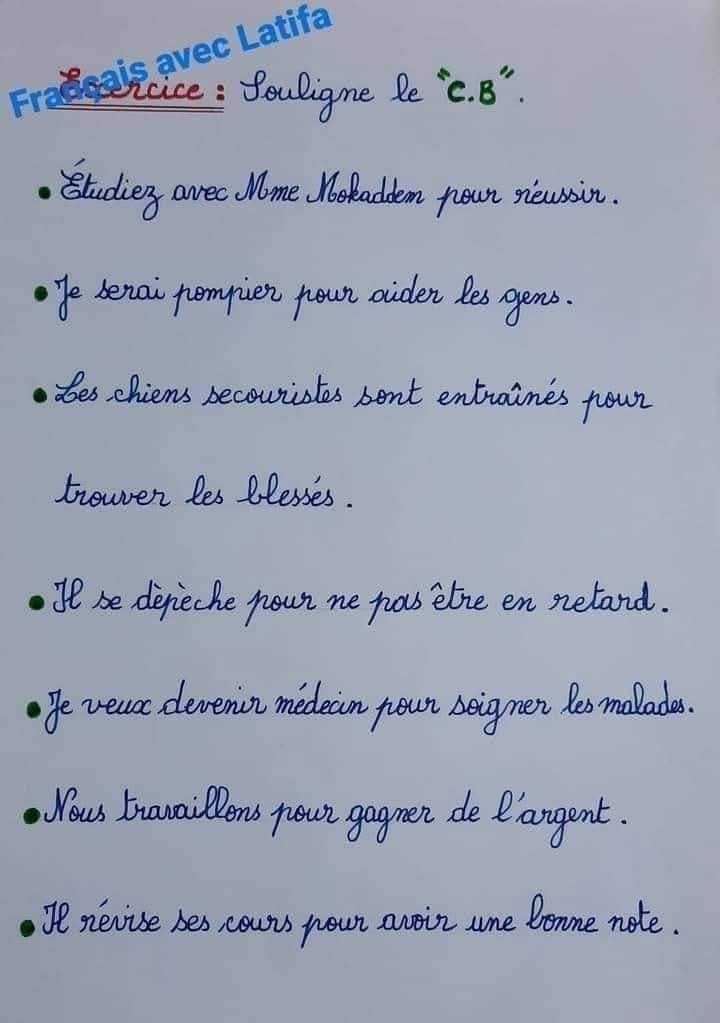 Français avec Latifa
Exercice : Souligne le "C.B".
• Étudiez avec Mme Mokaddem pour réussir.
• Je serai pompier pour aider les gens.
• Les chiens secouristes sont entraînés pour
trouver les blessés.
• Il se dèpèche pour ne pas être en retard.
• Je veux devenir médecin pour soigner les malades.
• Nous travaillons pour gagner de l'argent.
• Il révise ses cours pour avoir une bonne note.